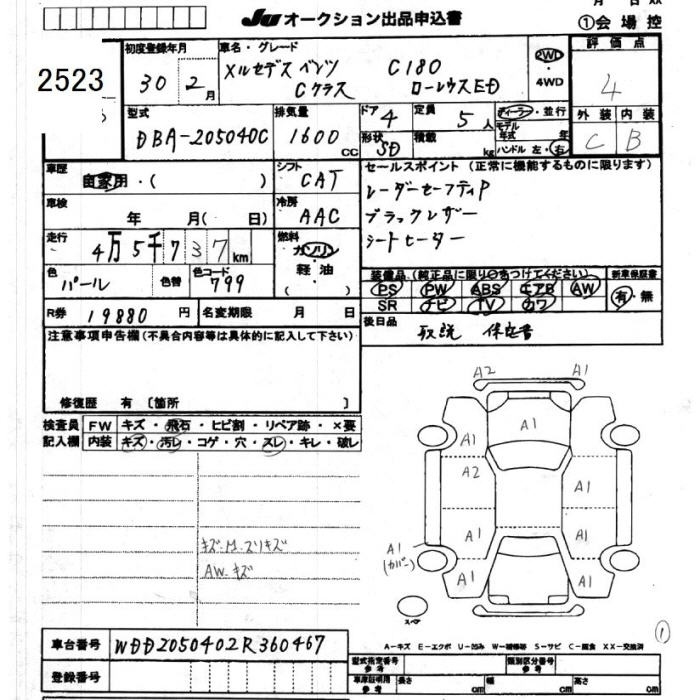 JU オークション出品申込書
①会場控
2523
初度登録年月
30年 2月
車名・グレード
メルセデスベンツ C180
Cクラス ローレウスED
2WD
4WD
評価点
4
型式
DBA-205040C
排気量
1600 CC
ドア
4
定員
5人
形状
SD
積載
kg
ディーラー・並行
モデル年式 年
ハンドル 左・右
外装 内装
C B
車歴
自家用・( )
シフト
CAT
セールスポイント (正常に機能するものに限ります)
レーダーセーフティP
ブラックレザー
シートヒーター
車検
年 月( 日)
冷房
AAC
走行
4万5千737km
燃料
ガソリン
軽油
( )
色
パール
色替
色コード
799
装備品(純正品に限り○をつけてください)
新車保証書
PS PW ABS エアB AW
SR ナビ TV カワ
有・無
R券 19880円
名変期限 月 日
後日品
取説 保証書
注意事項申告欄(不具合内容等は具体的に記入して下さい)
修復歴 有 〔箇所 〕
検査員記入欄
FW キズ・飛石・ヒビ割・リペア跡・×要
内装 キズ・汚レ・コゲ・穴・スレ・キレ・破レ
AW.キズ
A2 A1
A1
A1 A1
A2 A1
A1 A1
A1
(カバー)
A1 A1
スペア
①
車台番号 WDD2050402R360467
登録番号
A-キズ E-エクボ U-凹み W-補修跡 S-サビ C-腐食 XX-交換済
型式指定番号
参考
類別区分番号
参考
車庫証明用
参考
長さ cm
幅 cm
高さ cm